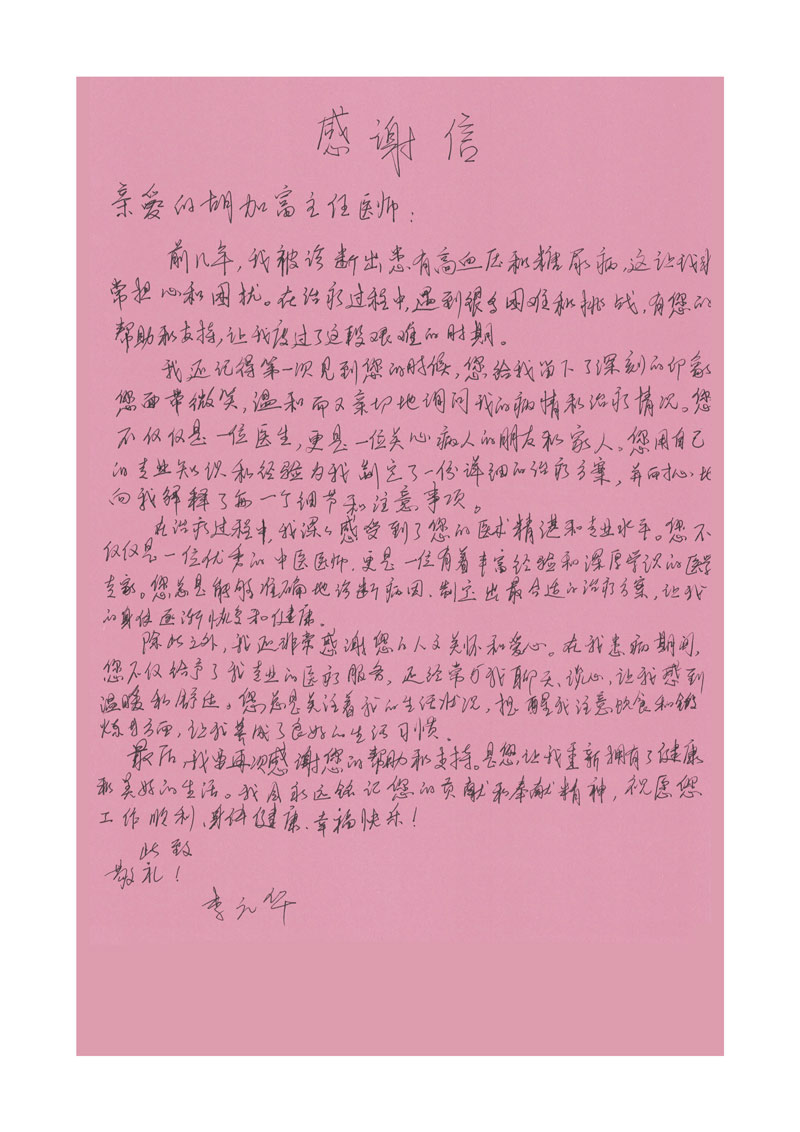 感谢信
亲爱的胡加富主任医师：
前几年，我被诊断出患有高血压和糖尿病，这让我非
常担心和困扰。在治疗过程中，遇到很多困难和挑战，有您的
帮助和支持，让我度过了这段艰难的时期。
我还记得第一次见到您的时候，您给我留下了深刻的印象
您面带微笑，温和而又亲切地询问我的病情和治疗情况。您
不仅仅是一位医生，更是一位关心病人的朋友和家人。您用自己
的专业知识和经验为我制定了一份详细的治疗方案，并耐心地
向我解释了每一个细节和注意事项。
在治疗过程中，我深深感受到了您的医术精湛和专业水平。您不
仅仅是一位优秀的中医医师，更是一位有着丰富经验和深厚学识的医学
专家。您总是能够准确地诊断病因、制定出最合适的治疗方案，让我
的身体逐渐恢复和健康。
除此之外，我还非常感谢您的人文关怀和爱心。在我患病期间，
您不仅给予了我专业的医疗服务，还经常与我聊天、谈心，让我感到
温暖和舒适。您总是关注着我的生活状况，提醒我注意饮食和锻
炼方面，让我养成了良好的生活习惯。
最后，我要再次感谢您的帮助和支持。是您，让我重新拥有了健康
和美好的生活。我会永远铭记您的贡献和奉献精神，祝愿您
工作顺利、身体健康、幸福快乐！
此致
敬礼！
李元华